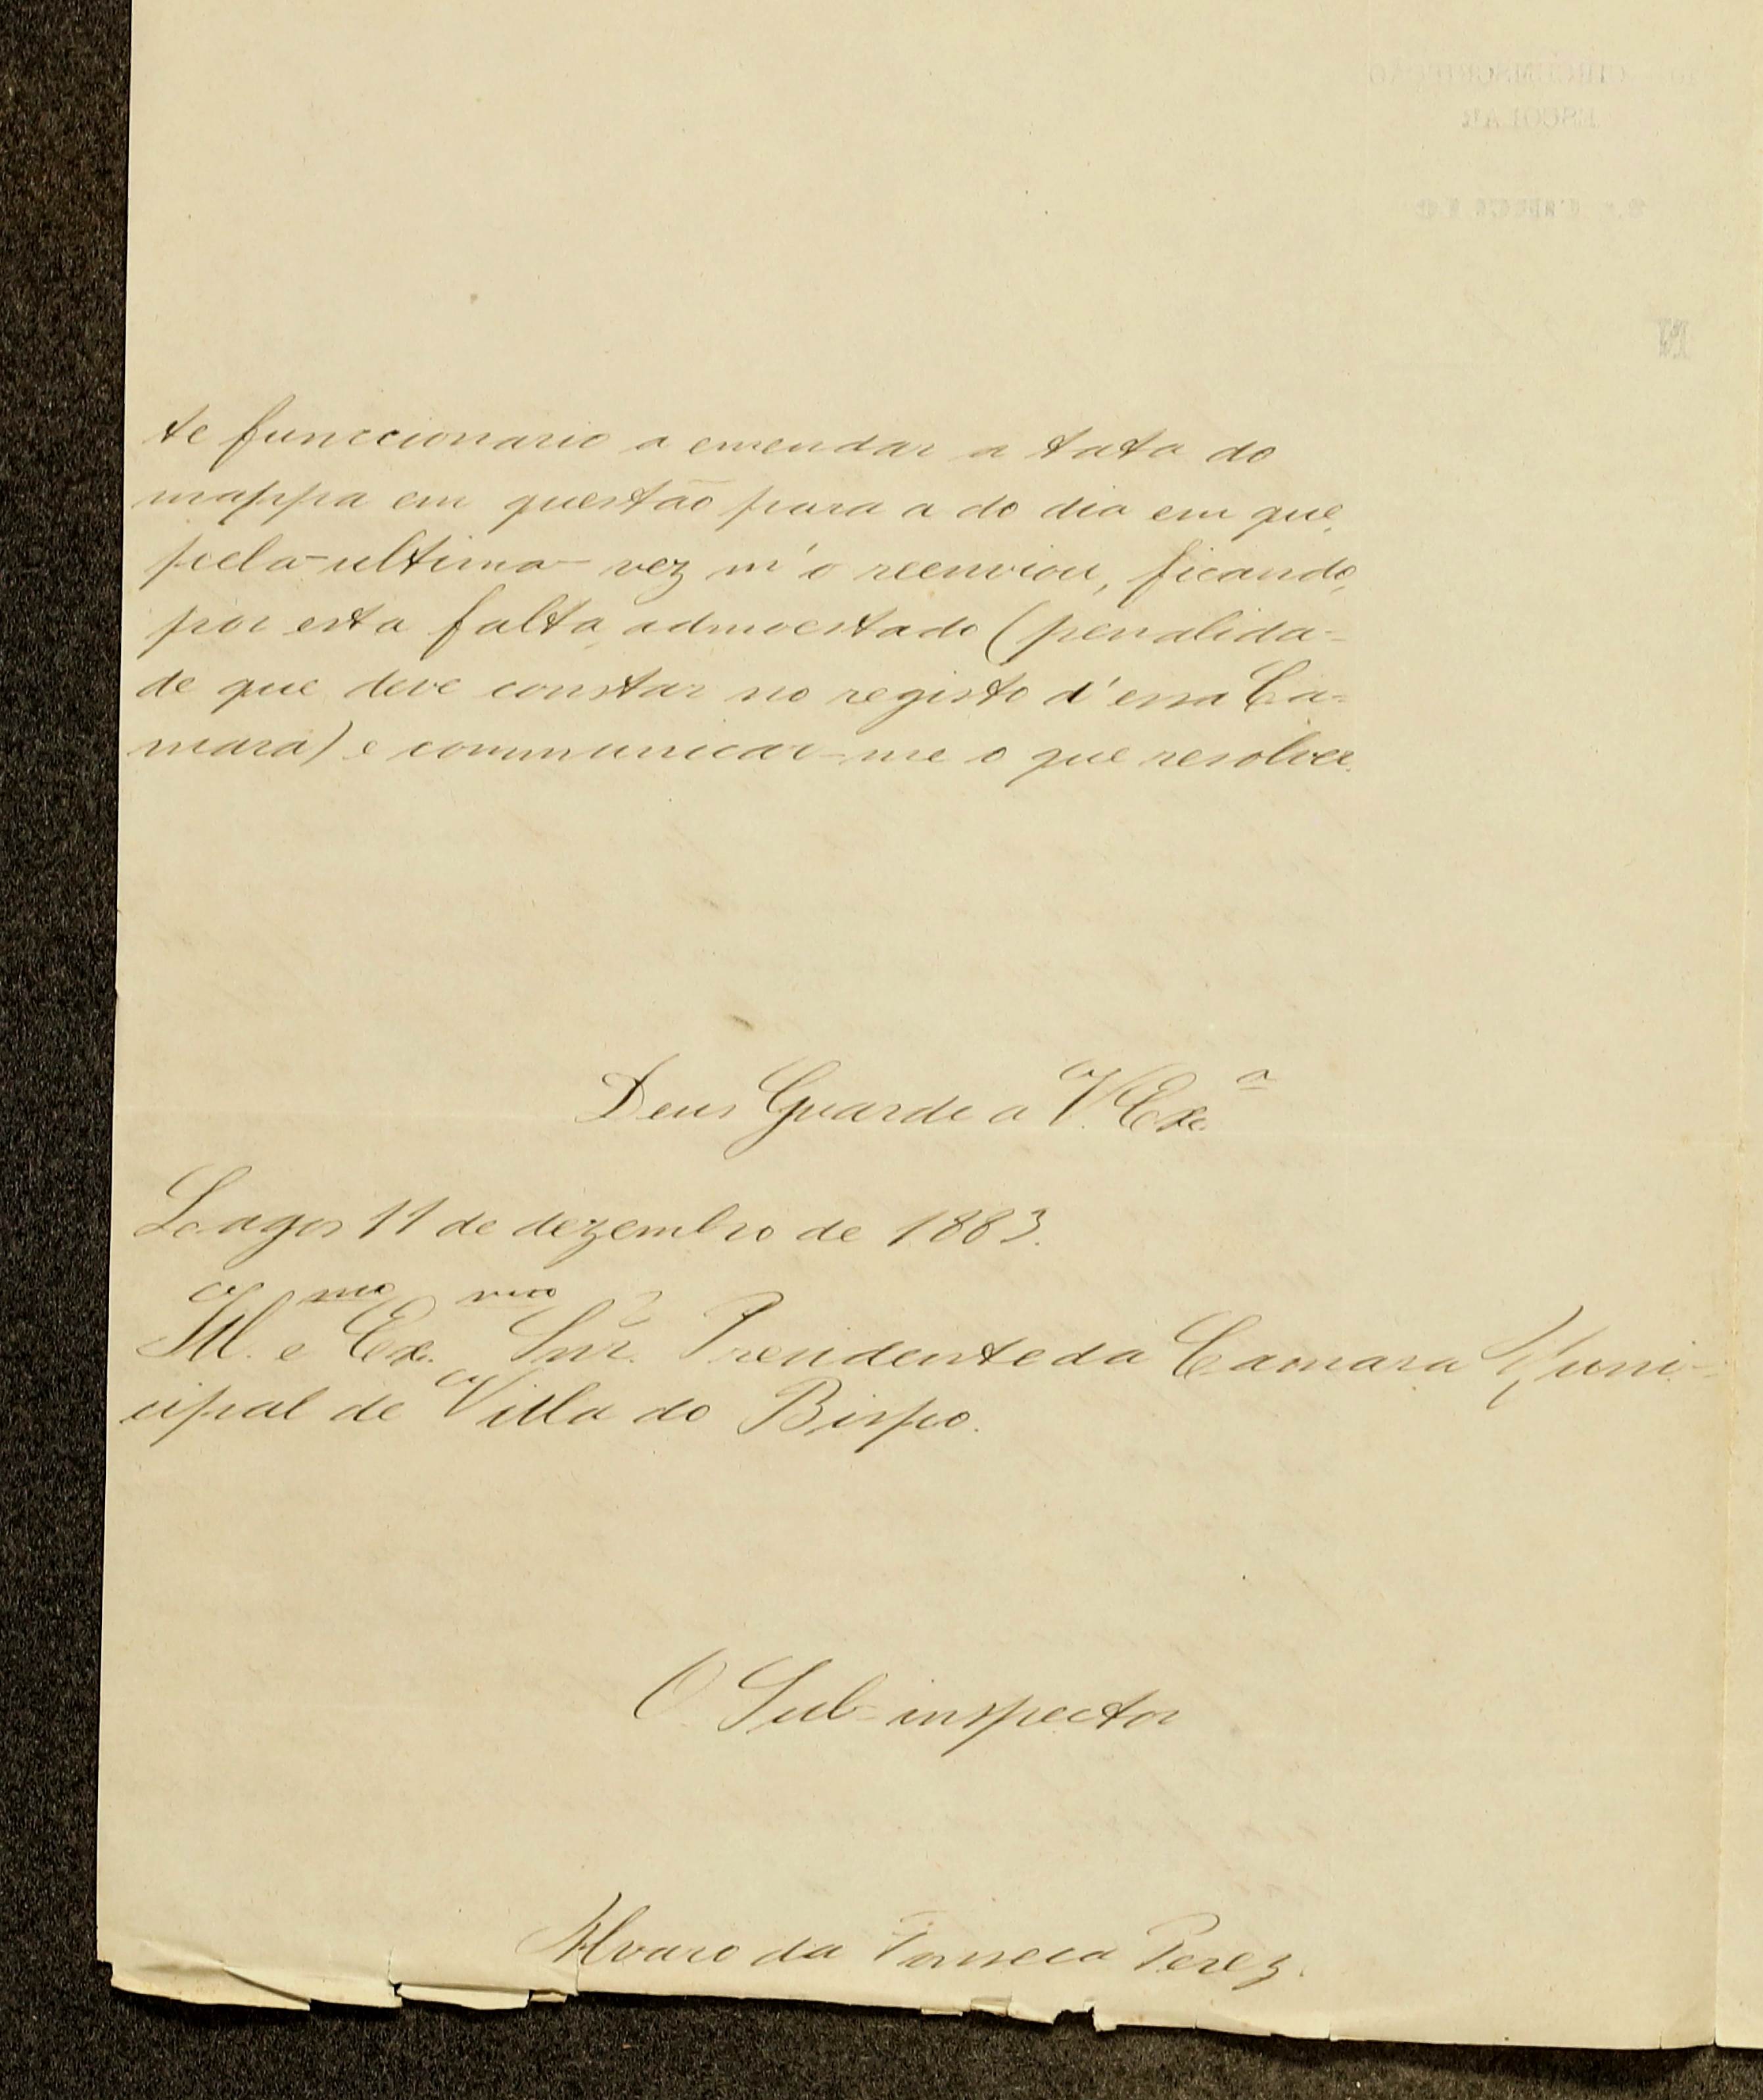 te funccionario a emendar a tata do
mappa em questão para a do dia em que,
pela ultima vez m'o reenviou, ficando,
por esta falta, admoestado (penalida-
de que deve constar no registo d'essa Ca-
mara) e communicar-me o que resolver.
Deus Guarde a V. Ex.ª
Lagos 11 de dezembro de 1883.
Ill.mo e Ex.mo Snr. Presidente da Camara Muni-
cipal de Villa do Bispo.
O Sub-inspector
Alvaro da Fonseca Perez.